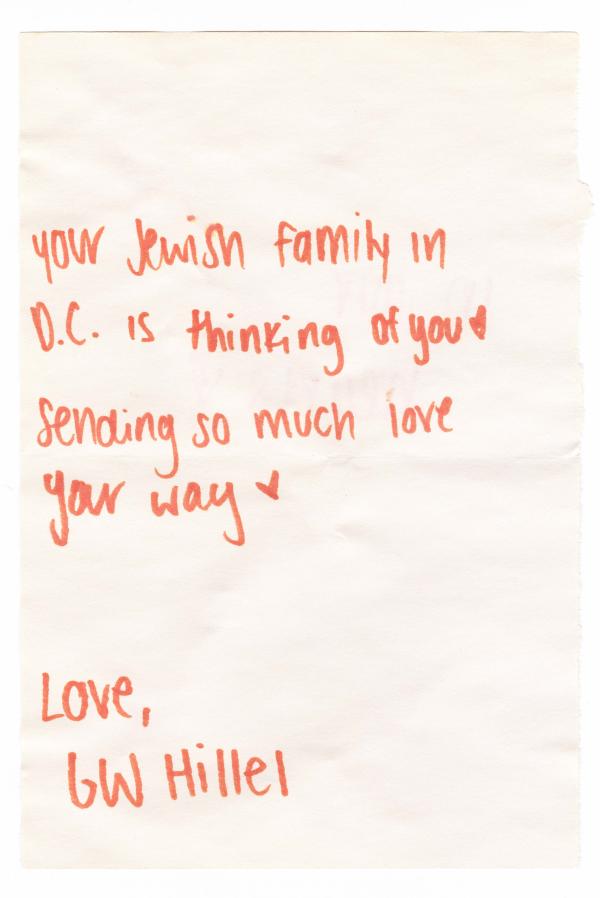 your Jewish family in
D.C. is thinking of you♥
Sending so much love
your way ♥
Love,
GW Hillel